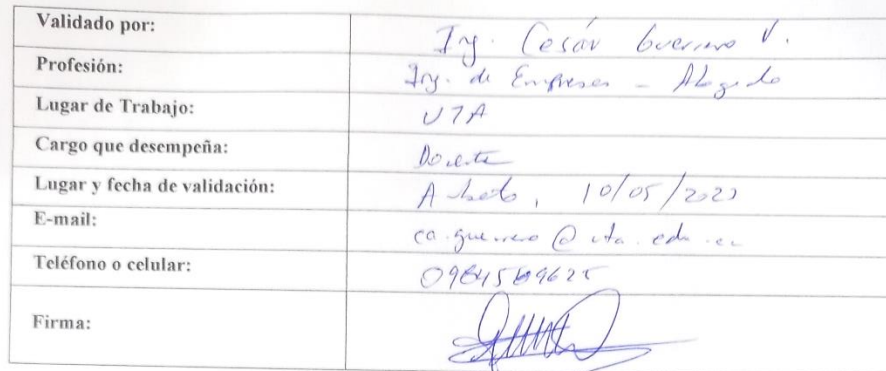 Validado por: Ing. César Guerrero V.
Profesión: Ing. de Empresas - Abogado
Lugar de Trabajo: UTA
Cargo que desempeña: Docente
Lugar y fecha de validación: Ambato, 10/05/2023
E-mail: ca.guerrero@uta.edu.ec
Teléfono o celular:
Firma: